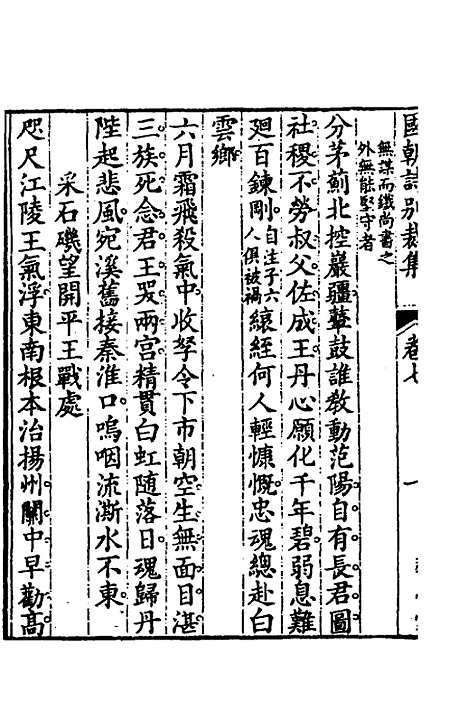 國朝詩別裁集 卷七 一
無謀而鐵尚書之
外無能堅守者
分茅薊北控巖疆鼙鼓誰敎動范陽自有長君圖
社稷不勞叔父佐成王丹心願化千年碧弱息難
廻百鍊剛自注子六人俱被禍縗絰何人輕慷慨忠魂總赴白
雲鄉
六月霜飛殺氣中收孥令下市朝空生無面目湛
三族死念君王哭兩宮精貫白虹隨落日魂歸丹
陛起悲風宛溪舊接秦淮口嗚咽流澌水不東
采石磯望開平王戰處
咫尺江陵王氣浮東南根本治揚州關中早勸高